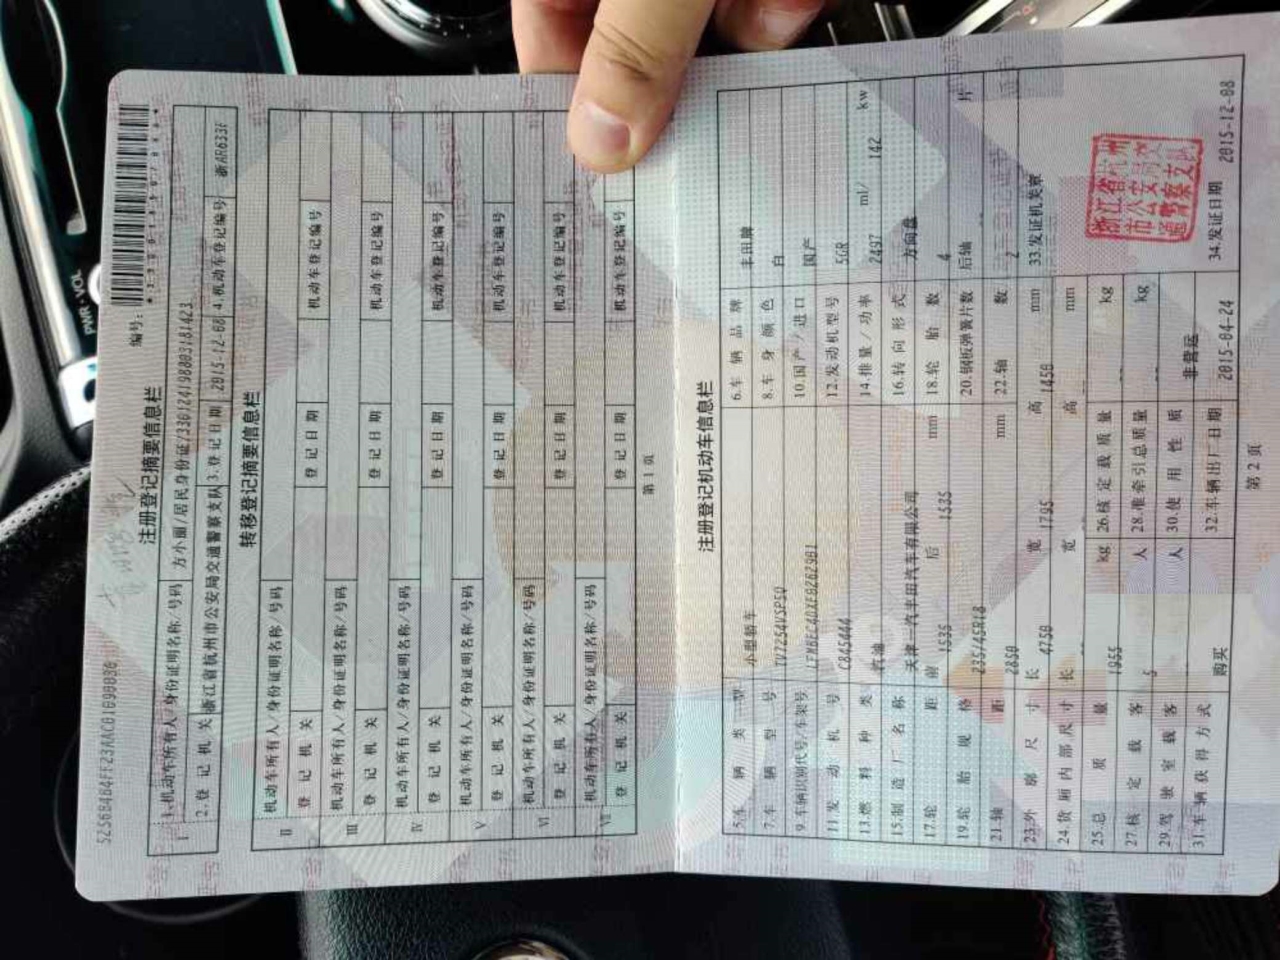 525684B4FF23AAC01090036
注册登记摘要信息栏
编号:
Ⅰ 1.机动车所有人/身份证明名称/号码 方小丽/居民身份证/330124198803181423
2.登记机关 浙江省杭州市公安局交通警察支队 3.登记日期 2015-12-08 4.机动车登记编号 浙AR633F
转移登记摘要信息栏
Ⅱ 机动车所有人/身份证明名称/号码
登记机关 登记日期 机动车登记编号
Ⅲ 机动车所有人/身份证明名称/号码
登记机关 登记日期 机动车登记编号
Ⅳ 机动车所有人/身份证明名称/号码
登记机关 登记日期 机动车登记编号
Ⅴ 机动车所有人/身份证明名称/号码
登记机关 登记日期 机动车登记编号
Ⅵ 机动车所有人/身份证明名称/号码
登记机关 登记日期 机动车登记编号
Ⅶ 机动车所有人/身份证明名称/号码
登记机关 登记日期 机动车登记编号
第1页
注册登记机动车信息栏
5.车辆类型 小型轿车 6.车辆品牌 丰田牌
7.车辆型号 TV7254VSP5Q 8.车身颜色 白
9.车辆识别代号/车架号 LFMBEC4DXF0262981 10.国产/进口 国产
11.发动机号 C845444 12.发动机型号 5GR
13.燃料种类 汽油 14.排量/功率 2497 ml/ 142 kw
15.制造厂名称 天津一汽丰田汽车有限公司 16.转向形式 方向盘
17.轮距 前 1535 后 1535 mm 18.轮胎数 4
19.轮胎规格 235/45R18 20.钢板弹簧片数 后轴 -- 片
21.轴距 2850 mm 22.轴数 2
23.外廓尺寸 长 4750 宽 1795 高 1450 mm 33.发证机关章
24.货厢内部尺寸 长 -- 宽 -- 高 -- mm
25.总质量 1955 kg 26.核定载质量 -- kg
27.核定载客 5 人 28.准牵引总质量 -- kg
29.驾驶室载客 -- 人 30.使用性质 非营运
31.车辆获得方式 购买 32.车辆出厂日期 2015-04-24 34.发证日期 2015-12-08
浙江省杭州
市公安局交
通警察支队
第2页
PWR·VOL